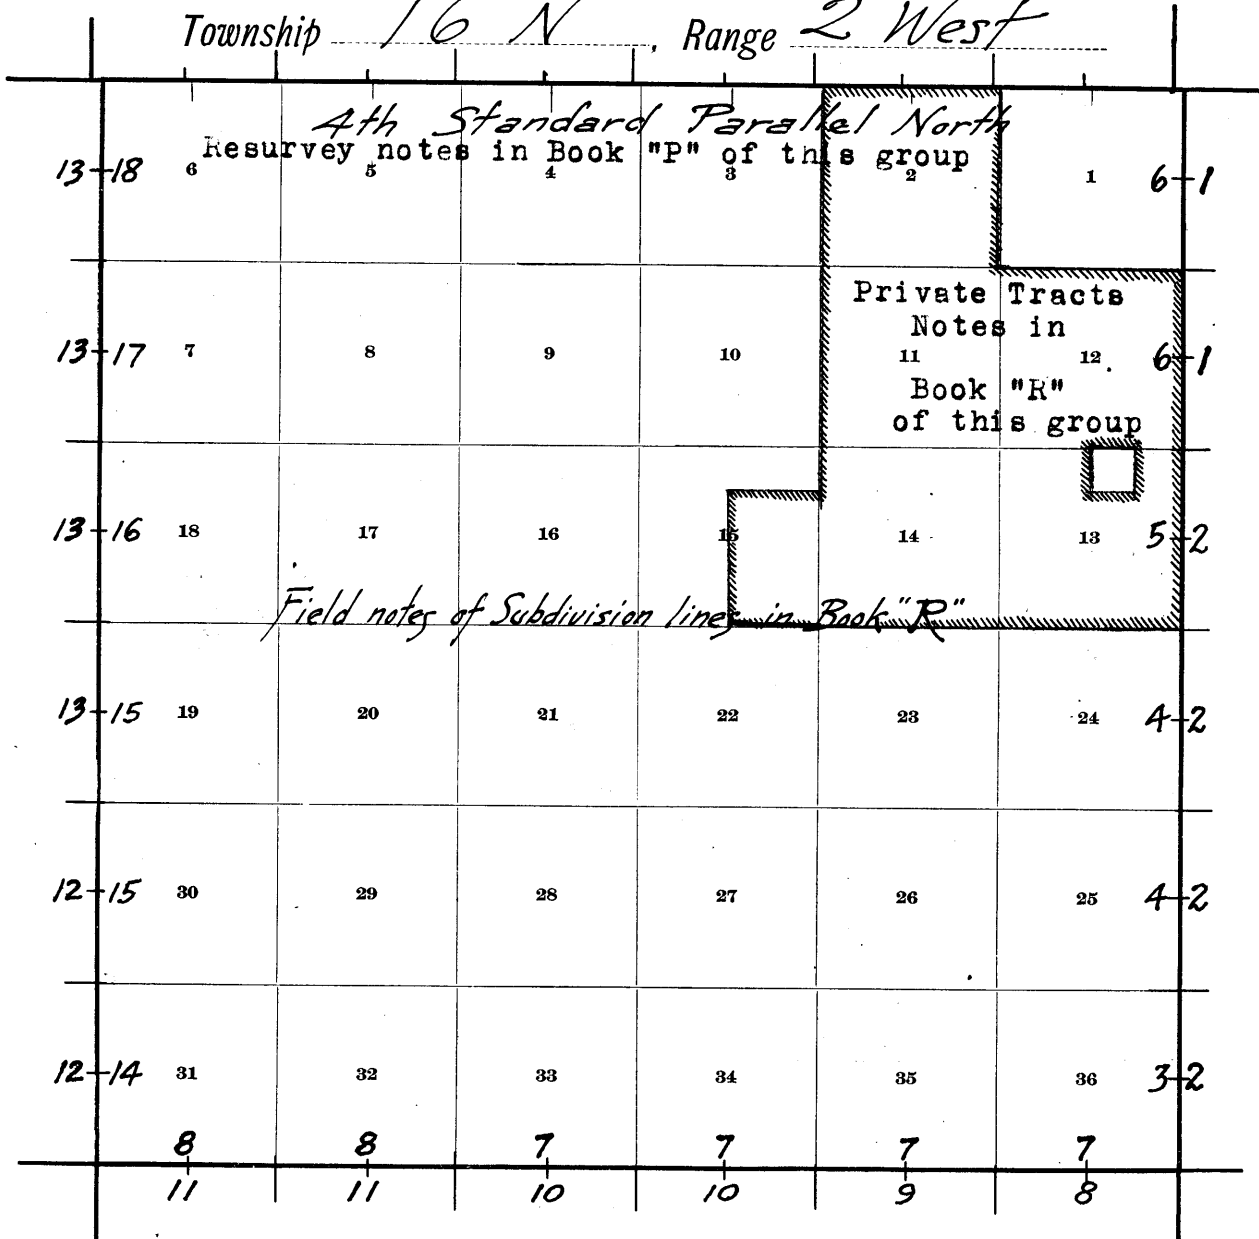 Township 16 N, Range 2 West
4th Standard Parallel North
Resurvey notes in Book "P" of this group
13 18 6 5 4 3 2 1 6 1
Private Tracts
Notes in
13 17 7 8 9 10 11 12 6 1
Book "R"
of this group
13 16 18 17 16 15 14 13 5 2
Field notes of Subdivision lines in Book "R"
13 15 19 20 21 22 23 24 4 2
12 15 30 29 28 27 26 25 4 2
12 14 31 32 33 34 35 36 3 2
8 8 7 7 7 7
11 11 10 10 9 8